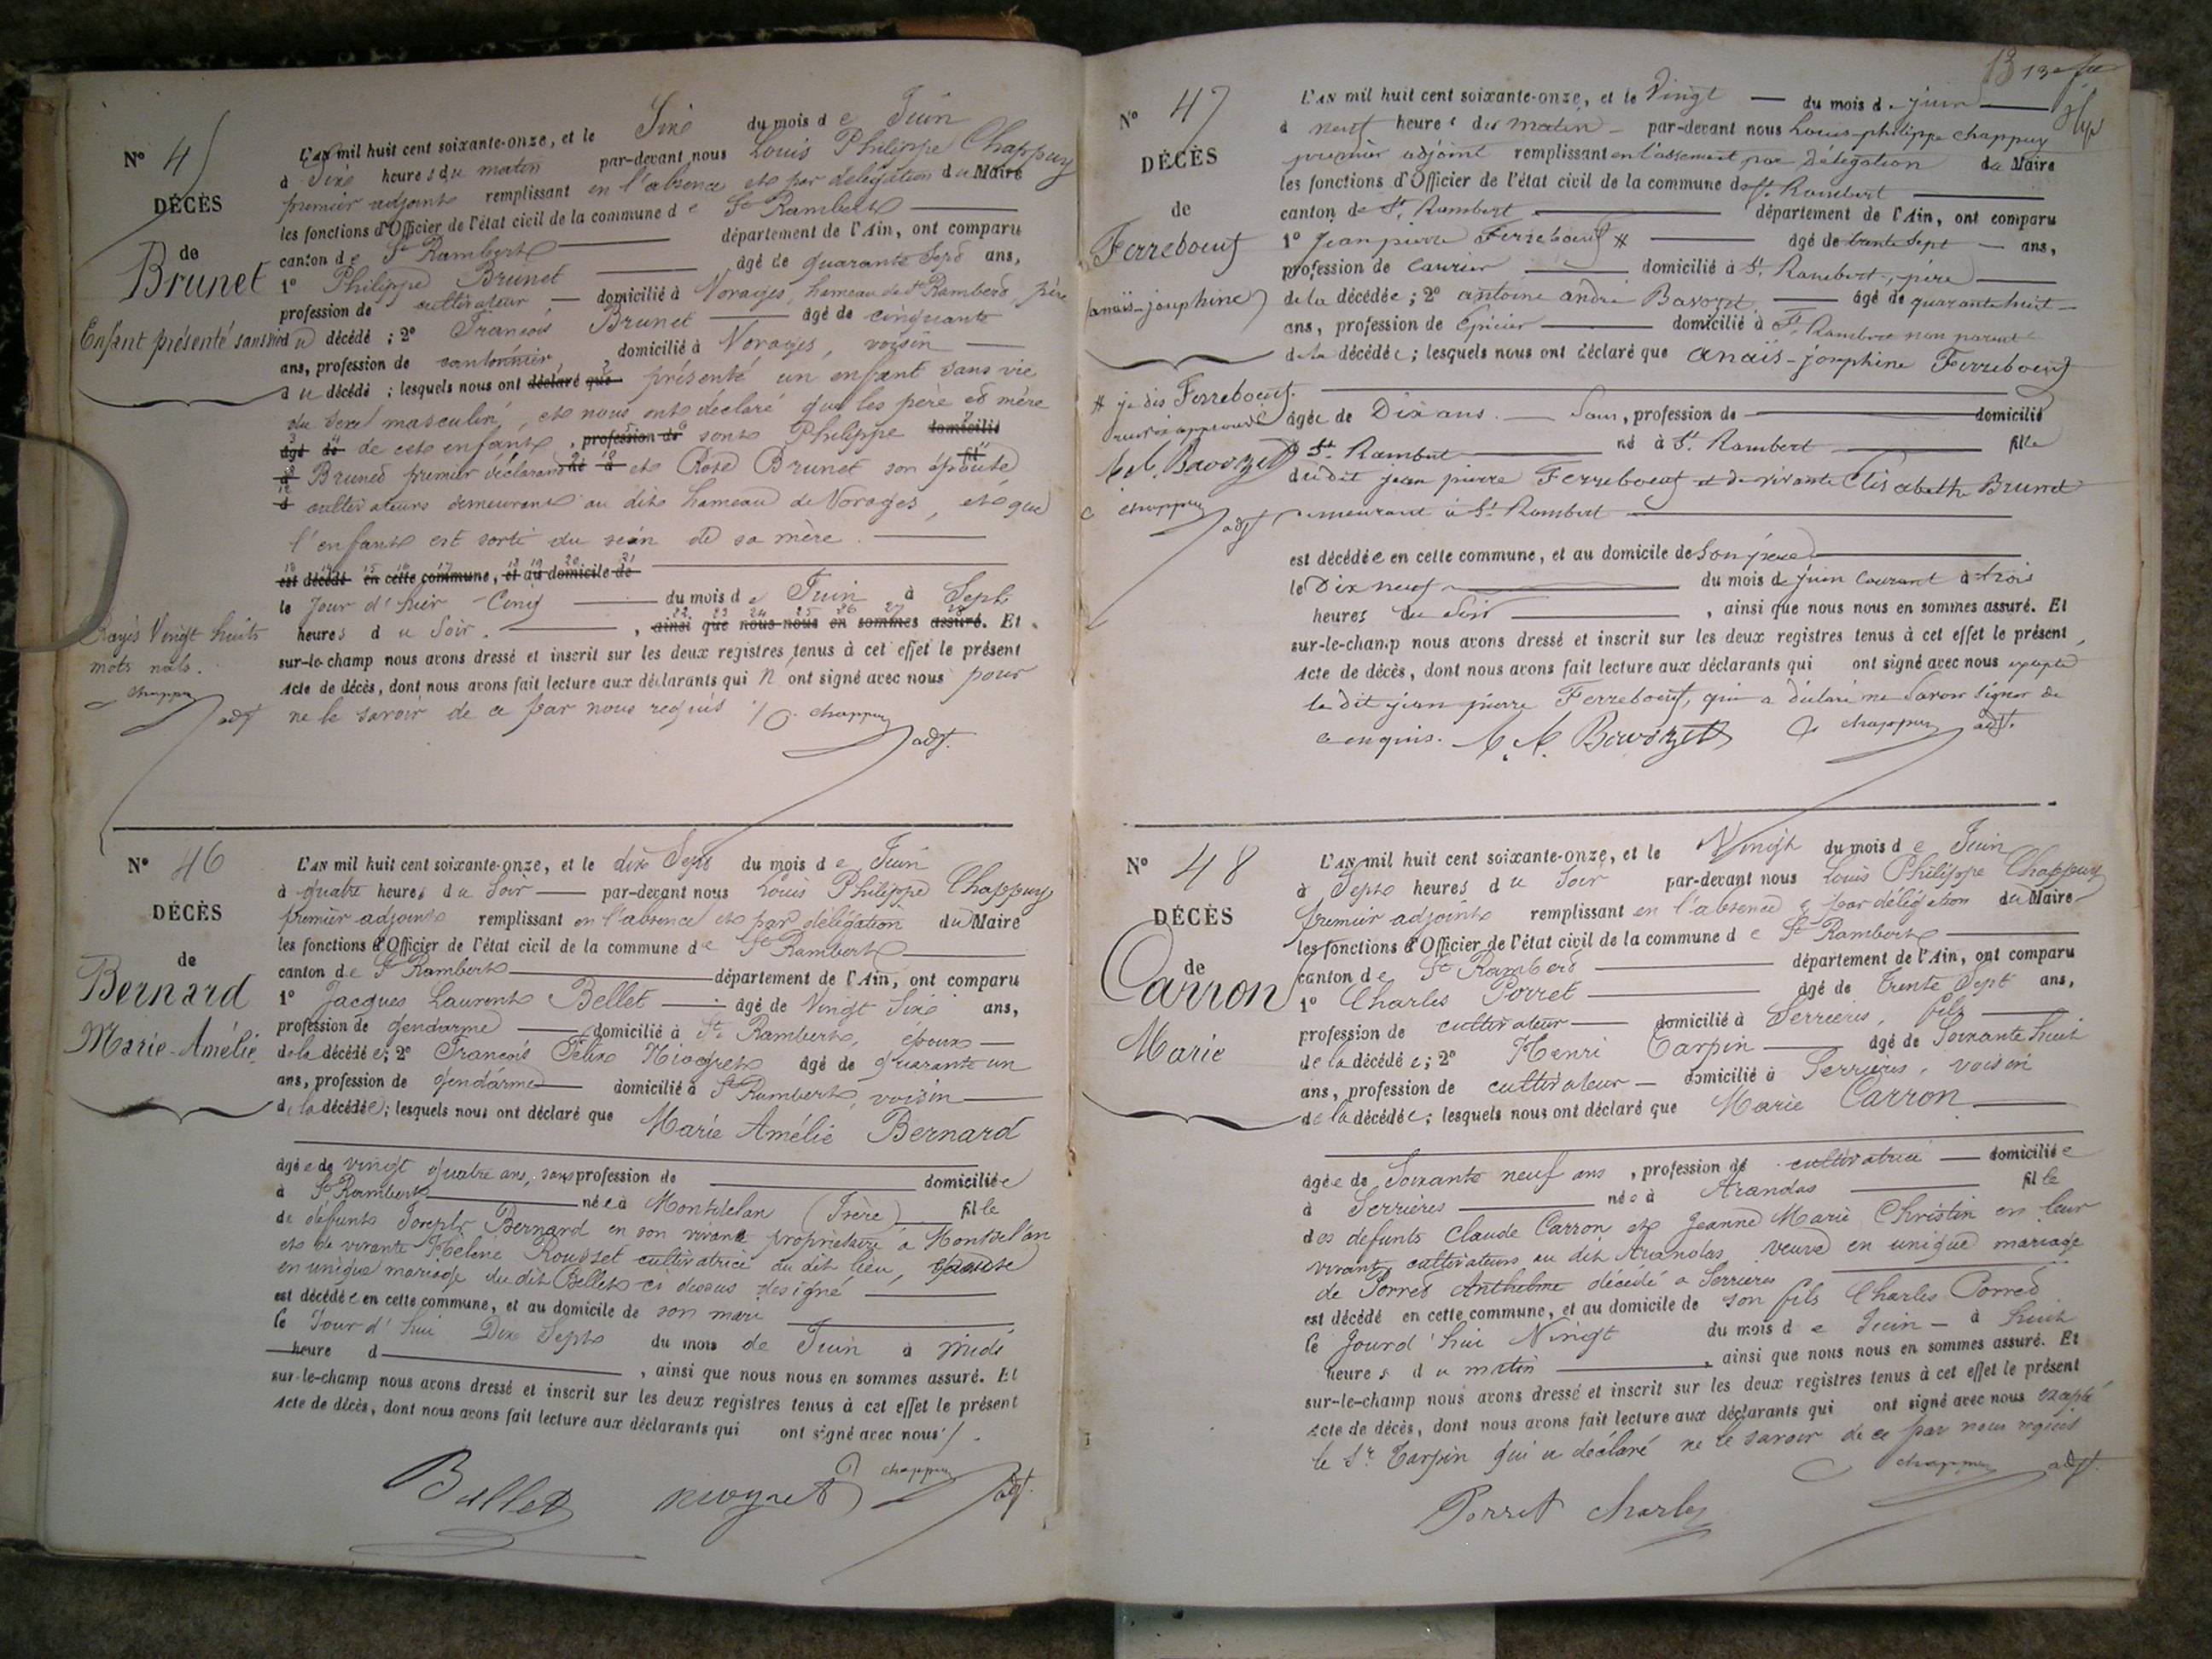 N° 45
DÉCÈS
de
Brunet
Enfant présenté sans vie
L'AN mil huit cent soixante-onze, et le Six du mois de Juin
à Dix heures du matin par-devant nous Louis Philippe Chappuy
premier adjoint remplissant en l'absence et par délégation du Maire
les fonctions d'Officier de l'état civil de la commune de St Rambert
canton de St Rambert département de l'Ain, ont comparu
1° Philippe Brunet âgé de quarante Sept ans,
profession de cultivateur domicilié à Vorages, hameau de St Rambert, père
du décédé ; 2° François Brunet âgé de cinquante
ans, profession de cantonnier, domicilié à Vorages, voisin
du décédé ; lesquels nous ont déclaré que présenté un enfant sans vie
du sexe masculin, et nous ont déclaré que les père et mère
âgé de de cet enfant, profession de sont Philippe domicilié
à Brunet premier déclarant né à et Rose Brunet son épouse fil
d cultivateurs demeurant au dit hameau de Vorages, et que
l'enfant est sorti du sein de sa mère.
est décédé en cette commune, et au domicile de
le Jour d'hier Cinq du mois de Juin à Sept
heures du Soir. , ainsi que nous nous en sommes assuré. Et
sur-le-champ nous avons dressé et inscrit sur les deux registres tenus à cet effet le présent
Acte de décès, dont nous avons fait lecture aux déclarants qui n ont signé avec nous pour
ne le savoir de ce par nous requis ./. chappuy
adjt.
Rayés Vingt huit
mots nuls.
chappuy
adjt
N° 46
DÉCÈS
de
Bernard
Marie-Amélie
L'AN mil huit cent soixante-onze, et le dix Sept du mois de Juin
à quatre heures du Soir par-devant nous Louis Philippe Chappuy
premier adjoint remplissant en l'absence et par délégation du Maire
les fonctions d'Officier de l'état civil de la commune de St Rambert
canton de St Rambert département de l'Ain, ont comparu
1° Jacques Laurent Bellet âgé de Vingt Six ans,
profession de gendarme domicilié à St Rambert, époux
de la décédée; 2° François Félix âgé de quarante un
ans, profession de gendarme domicilié à St Rambert, voisin
de la décédée; lesquels nous ont déclaré que Marie Amélie Bernard
âgée de vingt quatre ans, sans profession de domiciliée
à St Rambert née à Montdelan (Isère) fille
de défunt Joseph Bernard en son vivant propriétaire à Montdelan
et de vivante Hélène Rousset cultivatrice au dit lieu, épouse
en unique mariage du dit Bellet ci dessus designé
est décédée en cette commune, et au domicile de son mari
le Jour d'hui Dix Sept du mois de Juin à midi
heure d , ainsi que nous nous en sommes assuré. Et
sur-le-champ nous avons dressé et inscrit sur les deux registres tenus à cet effet le présent
Acte de décès, dont nous avons fait lecture aux déclarants qui ont signé avec nous ./.
Bellet chappuy adjt.
13 13e
N° 47
DÉCÈS
de
Ferreboeuf
anaïs-josephine
L'AN mil huit cent soixante-onze, et le Vingt du mois de juin
à neuf heures du matin par-devant nous Louis-philippe chappuy
premier adjoint remplissant en l'absence et par délégation du Maire
les fonctions d'Officier de l'état civil de la commune de St. Rambert
canton de St. Rambert département de l'Ain, ont comparu
1° Jean pierre Ferreboeuf # âgé de trente sept ans,
profession de Carrier domicilié à St. Rambert, père
de la décédée; 2° antoine andré Bavozet âgé de quarante huit
ans, profession de Epicier domicilié à St. Rambert non parent
de la décédée; lesquels nous ont déclaré que anaïs-josephine Ferreboeuf
âgée de Dix ans. Sans, profession de domicilié
à St. Rambert né à St. Rambert fille
dudit jean pierre Ferreboeuf et de vivante Elisabeth Brunet
demeurant à St. Rambert
est décédée en cette commune, et au domicile de son père
le Dix neuf du mois de juin courant à trois
heures du soir , ainsi que nous nous en sommes assuré. Et
sur-le-champ nous avons dressé et inscrit sur les deux registres tenus à cet effet le présent
Acte de décès, dont nous avons fait lecture aux déclarants qui ont signé avec nous excepté
le dit jean pierre Ferreboeuf, qui a déclaré ne savoir signer de
ce enquis. A. A. Bavozet chappuy adjt.
# je dis Ferreboeuf.
A. A. Bavozet
chappuy
adjt
N° 48
DÉCÈS
de
Carron
Marie
L'AN mil huit cent soixante-onze, et le Vingt du mois de Juin
à Sept heures du Soir par-devant nous Louis Philippe Chappuy
premier adjoint remplissant en l'absence & par délégation du Maire
les fonctions d'Officier de l'état civil de la commune de St Rambert
canton de St Rambert département de l'Ain, ont comparu
1° Charles Porret âgé de Trente Sept ans,
profession de cultivateur domicilié à Serrières, fils
de la décédée; 2° Henri Tarpin âgé de Soixante huit
ans, profession de cultivateur domicilié à Serrières, voisin
de la décédée; lesquels nous ont déclaré que Marie Carron
âgée de Soixante neuf ans, profession de cultivatrice domiciliée
à Serrières née à Arandas fille
des défunts Claude Carron et Jeanne Marie Christin en leur
vivant cultivateurs au dit Arandas, veuve en unique mariage
de Porret Anthelme décédé à Serrières
est décédé en cette commune, et au domicile de son fils Charles Porret
le Jourd'hui Vingt du mois de Juin à huit
heures du matin , ainsi que nous nous en sommes assuré. Et
sur-le-champ nous avons dressé et inscrit sur les deux registres tenus à cet effet le présent
Acte de décès, dont nous avons fait lecture aux déclarants qui ont signé avec nous excepté
le Sr Tarpin qui a déclaré ne le savoir de ce par nous requis
chappuy adjt.
Porret Charles